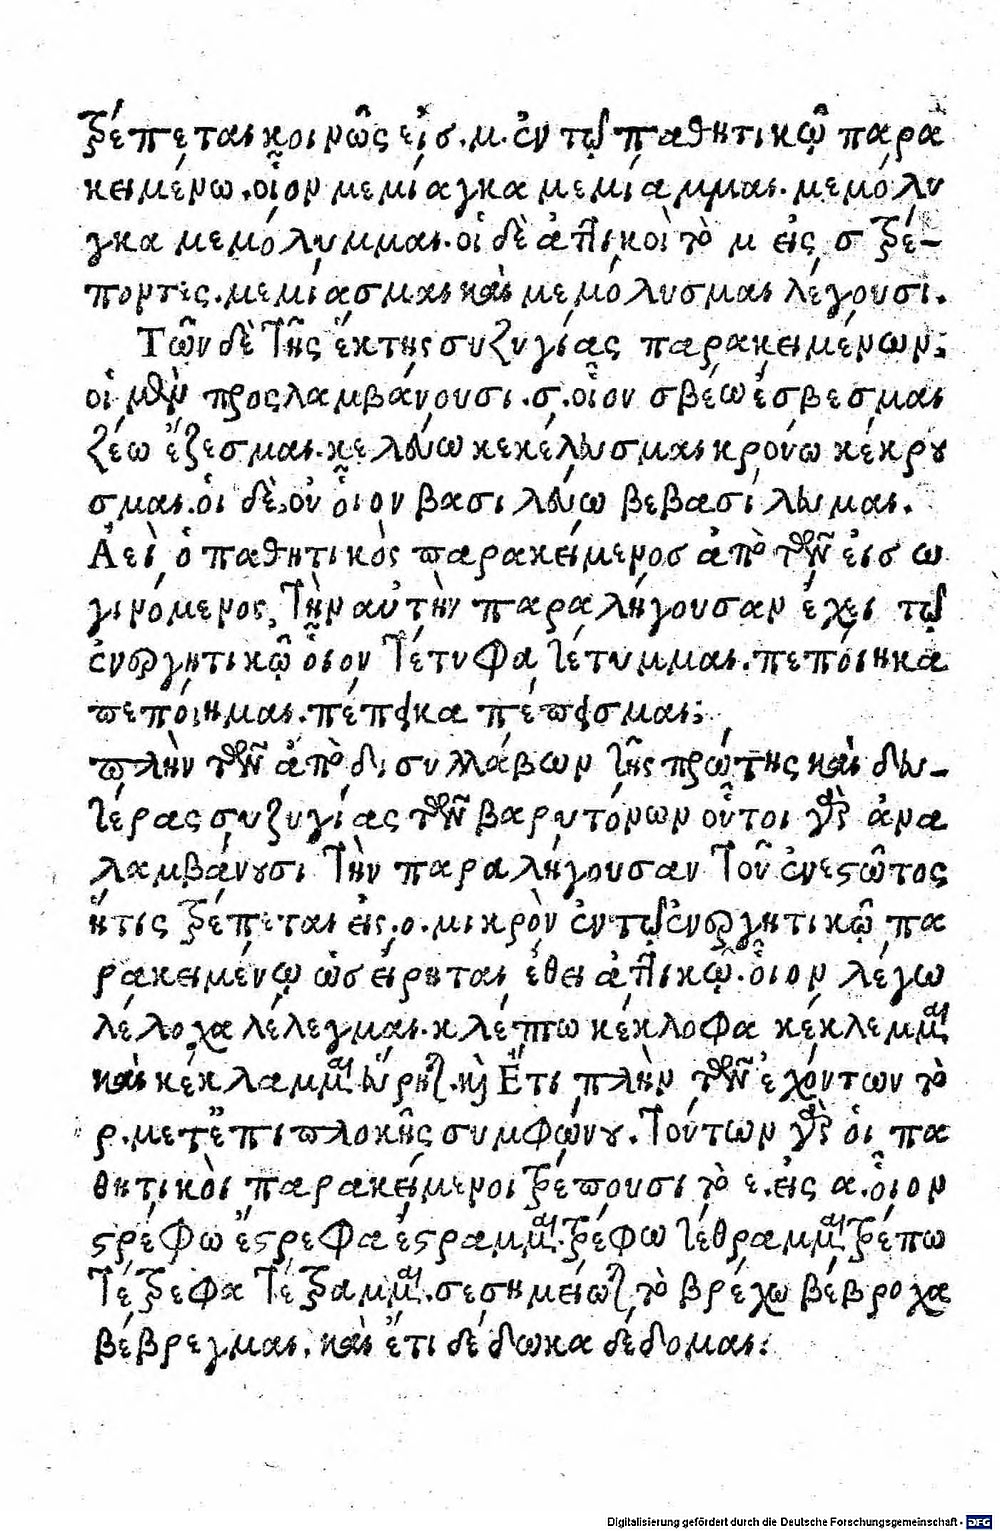 τρέπεται κοινῶς εἰ σ. μ. ἐν τῷ παθητικῷ παρα
κειμένω. οἷον μεμίαγκα μεμίαμμαι. μεμόλυ
γκα μεμόλυμμαι. οἱ δὲ ἀττικοὶ τὸ μ εἰς σ τρέ-
ποντες. μεμίασμαι καὶ μεμόλυσμαι λέγουσι.
Τῶν δὲ τῆς ἕκτης συζυγίας παρακειμένων;
οἱ μὲν προςλαμβάνουσι . σ . οἷον σβέω ἔσβεσμαι
ζέω ἔζεσμαι. κελεύω κεκέλευσμαι κρούω κέκρου
σμαι. ὁι δὲ, οὐ οἷον βασιλεύω βεβασίλευμαι.
Ἀεὶ ὁ παθητικὸς παρακείμενοσ ἀπὸ τῶν εἰσ ω
γινόμενος, τὴν αὐτὴν παραλήγουσαν ἔχει τῷ
ἐνεργητικῷ οἷον τέτυφα τέτυμμαι. πεπόιηκα
πεπόιημαι. πέπεικα πέπεισμαι;
πλὴν τῶν ἀπὸ δισυλλάβων τῆς πρώτης καὶ δευ-
τέρας συζυγίας τῶν βαρυτόνων οὗτοι γὰρ ἀνα
λαμβάνουσι τὴν παραλήγουσαν τοῦ ἐνεστῶτος
ἥτις τρέπεται εἰς . ο . μικρὸν ἐν τῷ ἐνεργητικῷ πα
ρακειμένῳ ὡσ είρηται ἔθει ἀττικῷ. ὁιον λέγω
λέλοχα λέλεγμαι. κλέπτω κέκλοφα κέκλεμμαι
καὶ κέκλαμμαι εὕρηται. καὶ Ἔτι πλὴν τῶν ἐχόντων τὸ
ρ. μετ' ἐπιπλοκῆς συμφώνου. τούτων γὰρ ὁι πα
θητικὸι παρακείμενοι τρέπουσι τὸ ε . εἰς α. οἷον
στρέφω ἔστρεφα ἔστραμμαι. τρέφω τέθραμμαι. τρέπω
τέτρεφα τέτραμμαι. σεσημείωται τὸ βρέχω βέβροχα
βέβρεγμαι. καὶ ἔτι δέδωκα δέδομαι:
Digitalisierung gefördert durch die Deutsche Forschungsgemeinschaft - DFG